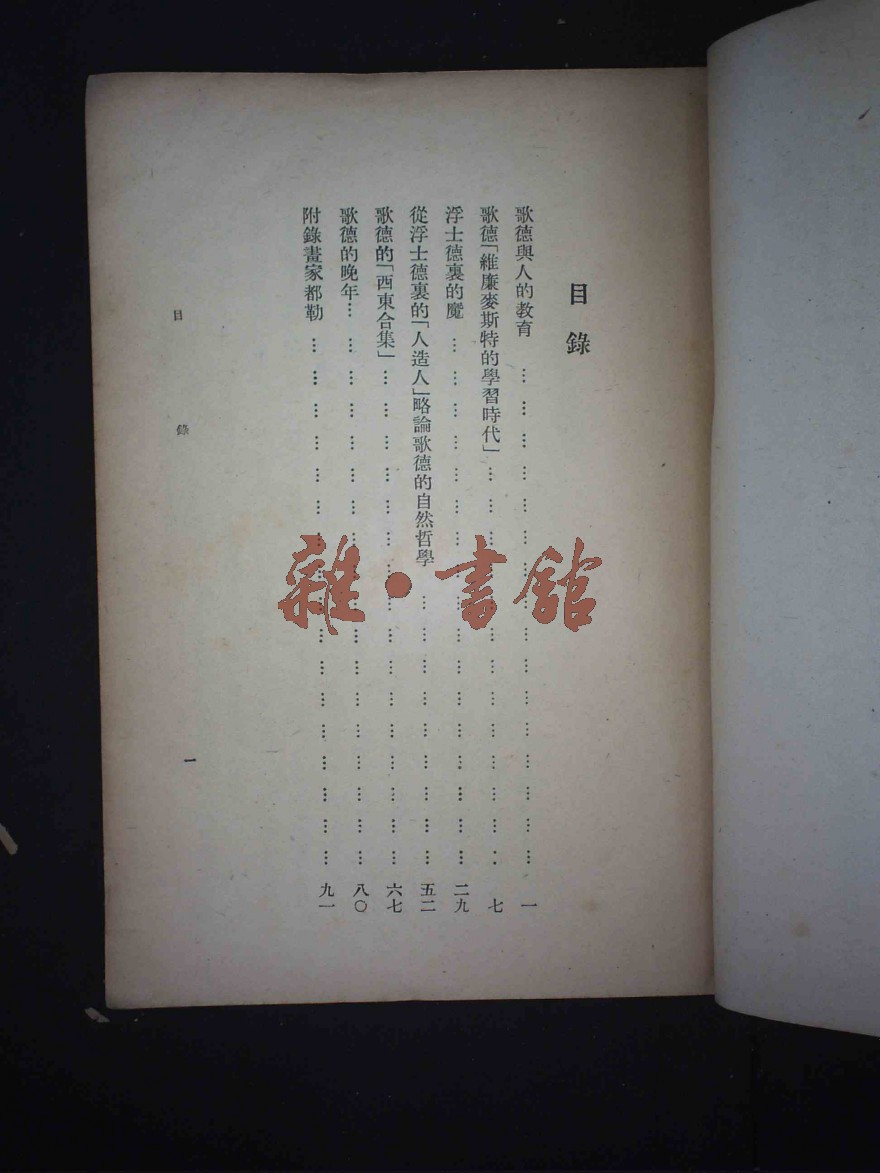 目錄
歌德與人的教育 … … … … … … … … … … … … … … … … … 一
歌德「維廉麥斯特的學習時代」 … … … … … … … … … … … … … … 七
浮士德裏的魔 … … … … … … … … … … … … … … … … … 二九
從浮士德裏的「人造人」略論歌德的自然哲學 … … … … … … … … … … 五二
歌德的「西東合集」 … … … … … … … … … … … … … … … … 六七
歌德的晚年 … … … … … … … … … … … … … … … … … … 八〇
附錄畫家都勒 … … … … … … … … … … … … … … … … … 九一
目錄 一
雜·書館